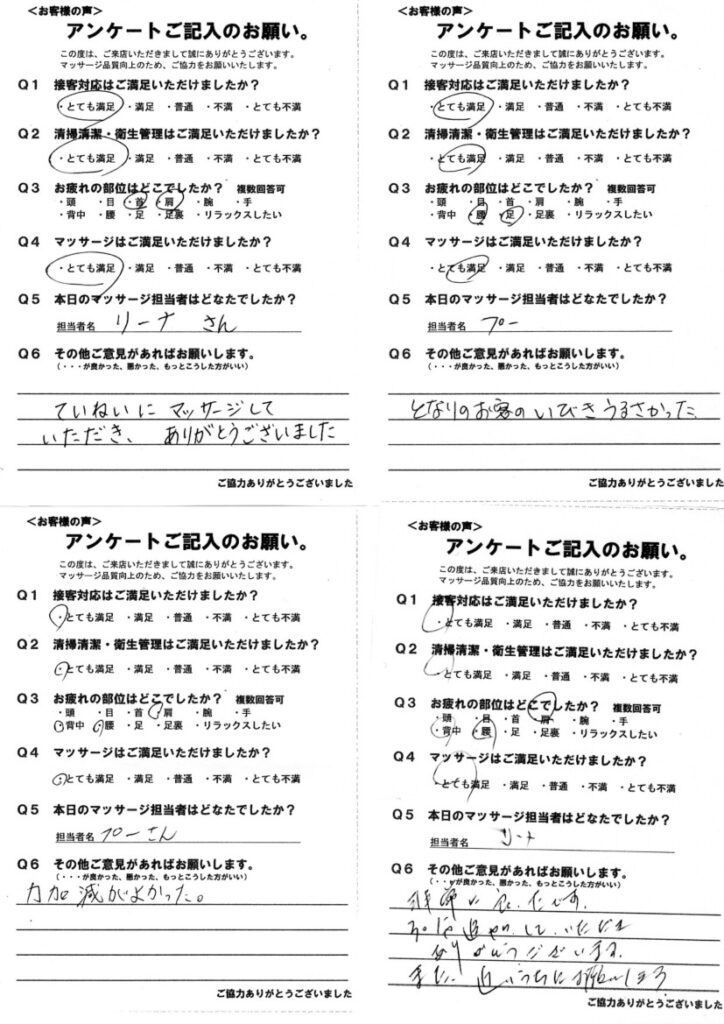 <お客様の声>
アンケートご記入のお願い。
この度は、ご来店いただきまして誠にありがとうございます。
マッサージ品質向上のため、ご協力をお願いいたします。
Q1 接客対応はご満足いただけましたか?
・とても満足 ・満足 ・普通 ・不満 ・とても不満
Q2 清掃清潔・衛生管理はご満足いただけましたか?
・とても満足 ・満足 ・普通 ・不満 ・とても不満
Q3 お疲れの部位はどこでしたか? 複数回答可
・頭 ・目 ・首 ・肩 ・腕 ・手
・背中 ・腰 ・足 ・足裏 ・リラックスしたい
Q4 マッサージはご満足いただけましたか?
・とても満足 ・満足 ・普通 ・不満 ・とても不満
Q5 本日のマッサージ担当者はどなたでしたか?
担当者名 リーナ さん
Q6 その他ご意見があればお願いします。
(・・・が良かった、悪かった、もっとこうした方がいい)
ていねいに マッサージして
いただき、 ありがとうございました
ご協力ありがとうございました
<お客様の声>
アンケートご記入のお願い。
この度は、ご来店いただきまして誠にありがとうございます。
マッサージ品質向上のため、ご協力をお願いいたします。
Q1 接客対応はご満足いただけましたか?
・とても満足 ・満足 ・普通 ・不満 ・とても不満
Q2 清掃清潔・衛生管理はご満足いただけましたか?
・とても満足 ・満足 ・普通 ・不満 ・とても不満
Q3 お疲れの部位はどこでしたか? 複数回答可
・頭 ・目 ・首 ・肩 ・腕 ・手
・背中 ・腰 ・足 ・足裏 ・リラックスしたい
Q4 マッサージはご満足いただけましたか?
・とても満足 ・満足 ・普通 ・不満 ・とても不満
Q5 本日のマッサージ担当者はどなたでしたか?
担当者名 プー
Q6 その他ご意見があればお願いします。
(・・・が良かった、悪かった、もっとこうした方がいい)
となりのお客のいびきうるさかった
ご協力ありがとうございました
<お客様の声>
アンケートご記入のお願い。
この度は、ご来店いただきまして誠にありがとうございます。
マッサージ品質向上のため、ご協力をお願いいたします。
Q1 接客対応はご満足いただけましたか?
・とても満足 ・満足 ・普通 ・不満 ・とても不満
Q2 清掃清潔・衛生管理はご満足いただけましたか?
・とても満足 ・満足 ・普通 ・不満 ・とても不満
Q3 お疲れの部位はどこでしたか? 複数回答可
・頭 ・目 ・首 ・肩 ・腕 ・手
・背中 ・腰 ・足 ・足裏 ・リラックスしたい
Q4 マッサージはご満足いただけましたか?
・とても満足 ・満足 ・普通 ・不満 ・とても不満
Q5 本日のマッサージ担当者はどなたでしたか?
担当者名 プーさん
Q6 その他ご意見があればお願いします。
(・・・が良かった、悪かった、もっとこうした方がいい)
力加減がよかった。
ご協力ありがとうございました
<お客様の声>
アンケートご記入のお願い。
この度は、ご来店いただきまして誠にありがとうございます。
マッサージ品質向上のため、ご協力をお願いいたします。
Q1 接客対応はご満足いただけましたか?
・とても満足 ・満足 ・普通 ・不満 ・とても不満
Q2 清掃清潔・衛生管理はご満足いただけましたか?
・とても満足 ・満足 ・普通 ・不満 ・とても不満
Q3 お疲れの部位はどこでしたか? 複数回答可
・頭 ・目 ・首 ・肩 ・腕 ・手
・背中 ・腰 ・足 ・足裏 ・リラックスしたい
Q4 マッサージはご満足いただけましたか?
・とても満足 ・満足 ・普通 ・不満 ・とても不満
Q5 本日のマッサージ担当者はどなたでしたか?
担当者名
Q6 その他ご意見があればお願いします。
(・・・が良かった、悪かった、もっとこうした方がいい)
に良かったです。
していただき
ありがとうございます。
また 近いうちに
ご協力ありがとうございました